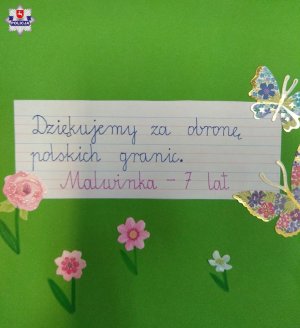 POLICJA
Dziękujemy za obronę
polskich granic.
Malwinka - 7 lat